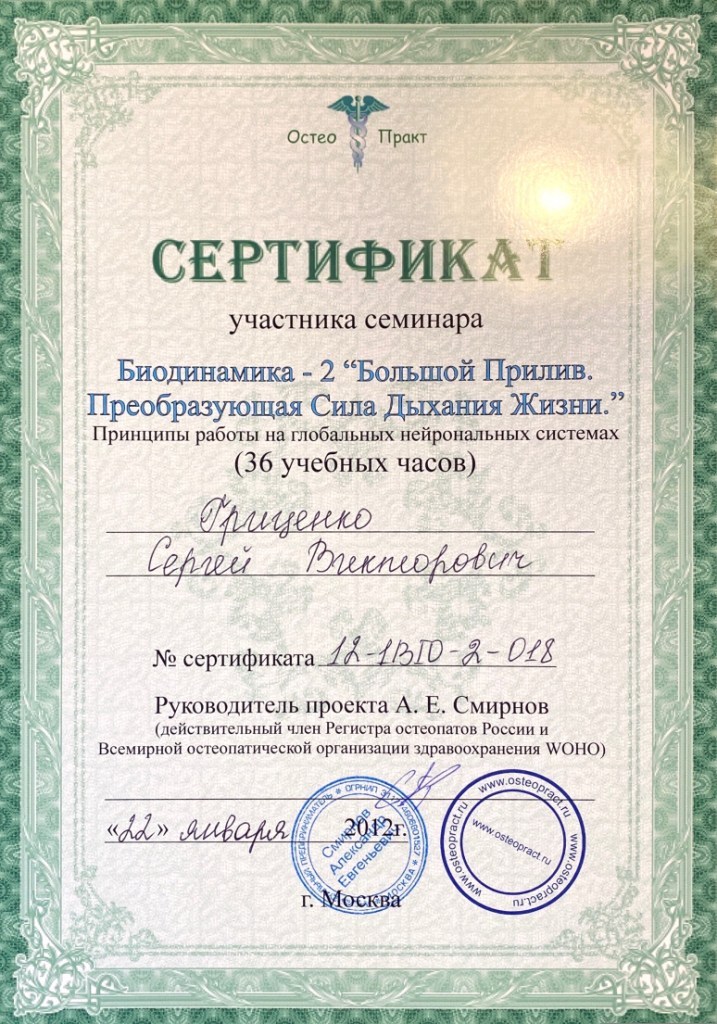 Остео Практ
СЕРТИФИКАТ
участника семинара
Биодинамика - 2 “Большой Прилив.
Преобразующая Сила Дыхания Жизни.”
Принципы работы на глобальных нейрональных системах
(36 учебных часов)
Гриценко
Сергей Викторович
№ сертификата 12-1ВТО-2-018
Руководитель проекта А. Е. Смирнов
(действительный член Регистра остеопатов России и
Всемирной остеопатической организации здравоохранения WOHO)
«22» января 2012г.
г. Москва
Смирнов
Александр
Евгеньевич
ПРЕДПРИНИМАТЕЛЬ * ОГРНИП
МОСКВА
www.osteopract.ru
www.osteopract.ru
www.osteopract.ru
www.osteopract.ru
www.osteopract.ru